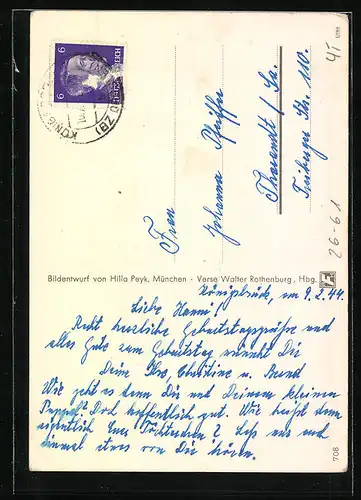 6 6
KÖNIG
(BZ D
Frau
Johanna Pfeiffer
Tharandt / Sa.
Str. 110.
26-61
Bildentwurf von Hilla Peyk, München · Verse Walter Rothenburg, Hbg.
Königsbrück, am 9.2.44.
Liebe Hanni!
Recht herzliche Geburtstagsgrüße und
alles Gute zum Geburtstag wünscht Dir
Deine Ilse, Christine u. Bernd
Wie geht es denn Dir und Deinem kleinen
Doch hoffentlich gut. Wie heißt denn
eigentlich Euer Töchterchen? Laß uns mal
einmal etwas von Dir hören.
708